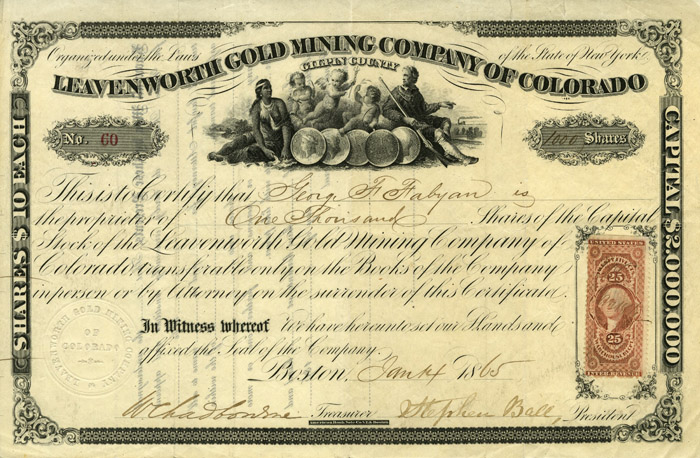 Organized under the Laws of the State of New York
LEAVENWORTH GOLD MINING COMPANY OF COLORADO
GILPIN COUNTY
No. 60
1000 Shares
SHARES $10 EACH
CAPITAL $2,000,000
This is to Certify that Georg. F. Fabyan is
the proprietor of One Thousand Shares of the Capital
Stock of the Leavenworth Gold Mining Company of
Colorado, transferable only on the Books of the Company
in person or by Attorney on the surrender of this Certificate.
In Witness whereof We have hereunto set our Hands and
affixed the Seal of the Company.
Boston, Jan 4 1865
W Chadbourne Treasurer Stephen Ball, President
LEAVENWORTH GOLD MINING COMPANY
OF
COLORADO
UNITED STATES
25
25